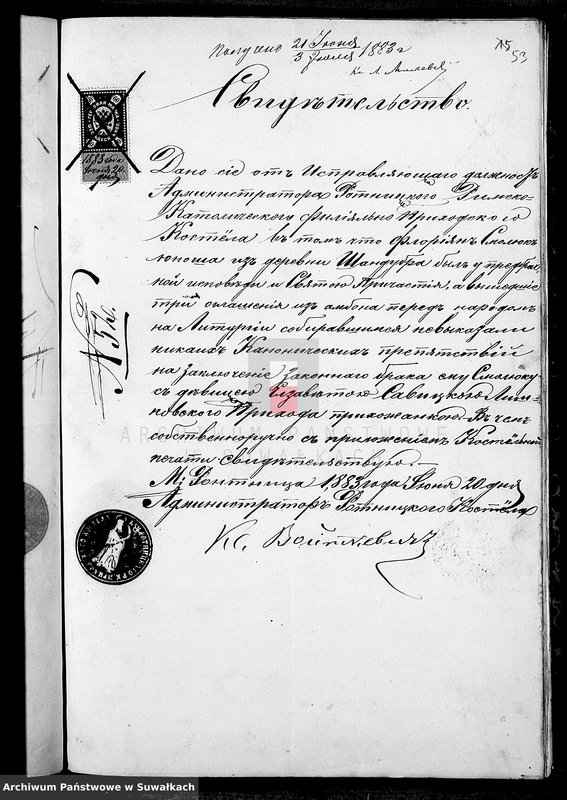 Получено 21 Июня / 3 Июля 1883 г
15
53
Кс. А.
Свидѣтельство.
1883 года
Июня 20.
дня
Дано сіе отъ Исправляющаго должность
Администратора Ротницкаго Римско-
Католическаго Филіяльно Приходскаго
Костёла въ томъ что Флоріянъ Смолюкъ
юноша изъ деревни Шандубра былъ у предбрач
ной исповѣди и Святаго Причастія, а вышедшіе
трій оглашенія изъ амбона передъ народомъ
на Литургіи собиравшимся невыказали
никакихъ Каноническихъ препятствій
на заключеніе законнаго брака ему Смолюку
съ дѣвицею Елзавѣтою Савицкою
Прихода прихожанкою. Въ чемъ
собственноручно съ приложеніемъ Костёльной
печати свидѣтельствую.
М: Ротница 1883 года Июня 20 дня
Администраторъ Ротницкаго Костёла
Кс. Войткевичъ
N 32.
ARCHIWUM PAŃSTWOWE
W SUWAŁKACH
Archiwum Państwowe w Suwałkach